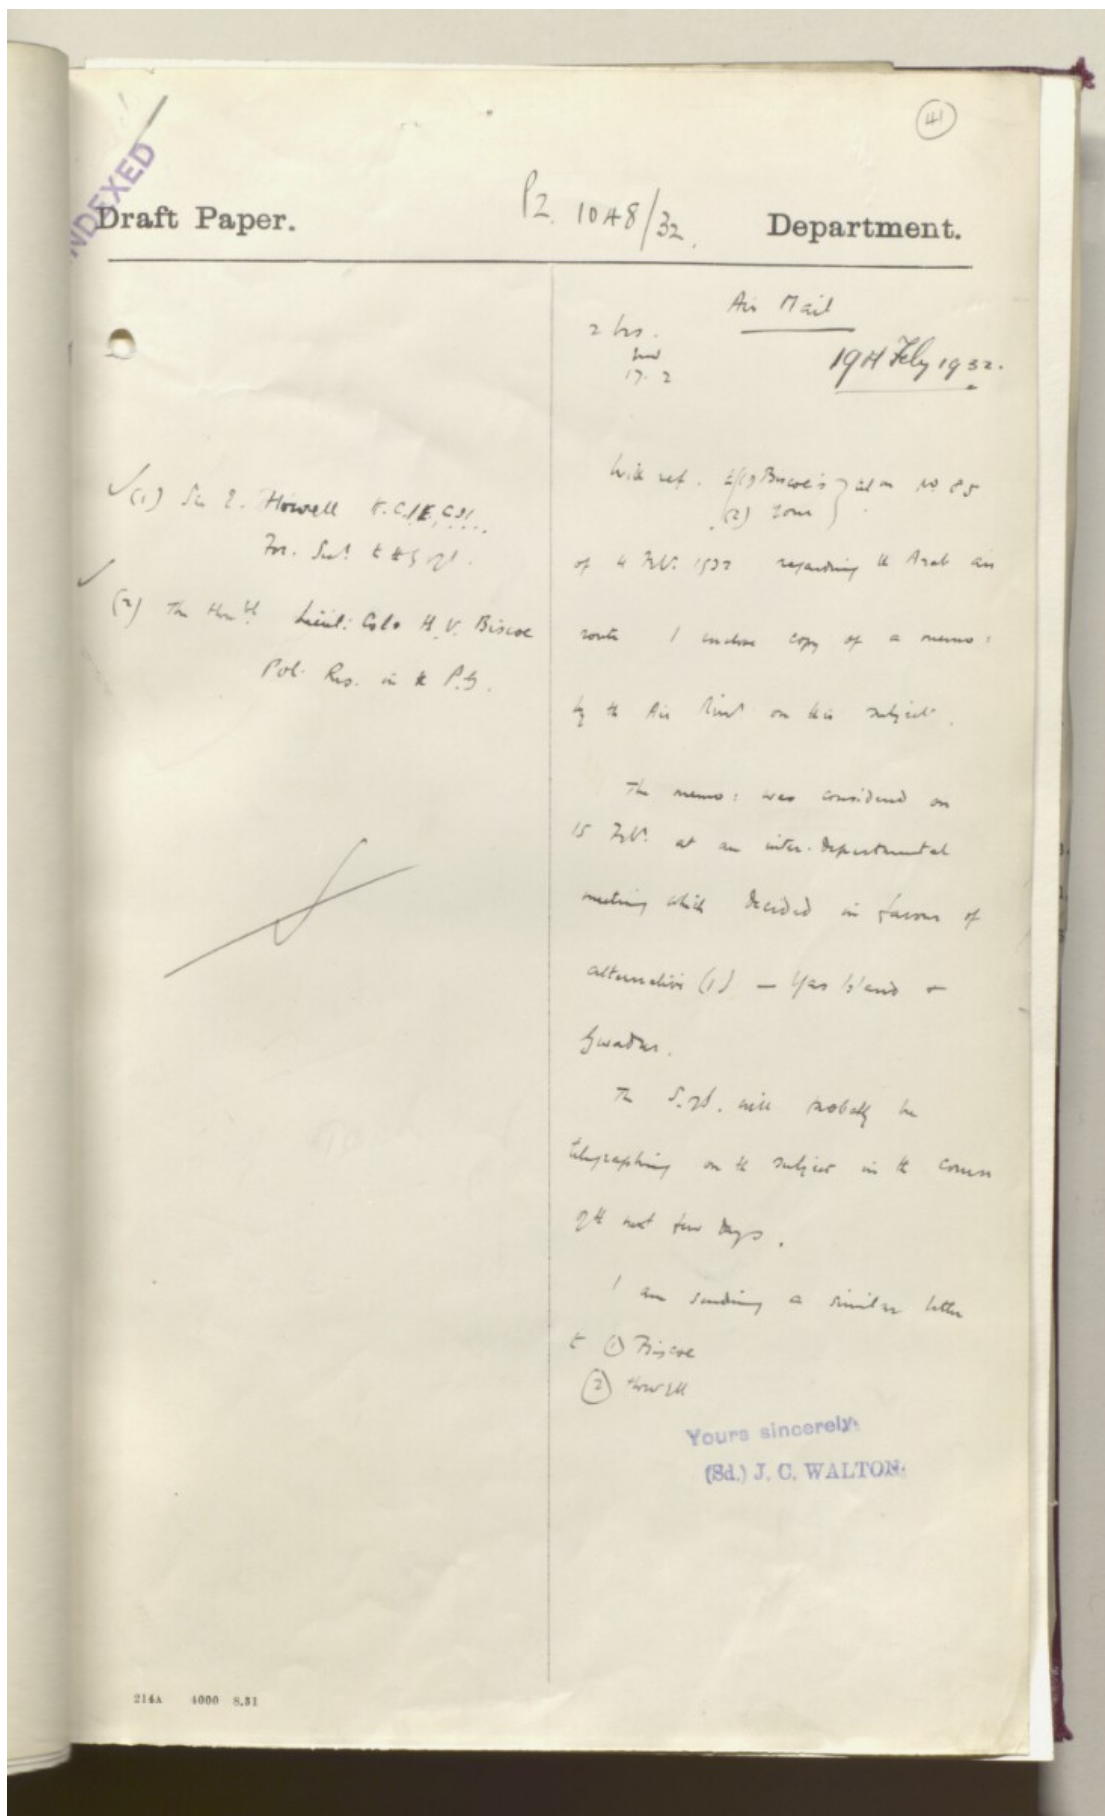 41
INDEXED
Draft Paper.
PZ. 1048/32.
Department.
Air Mail
2 lrs.
17. 2
19th Feby 1932.
✓ (1) Sir E. Howell K.C.I.E, C.S.I.
For. Sec. t th G of I.
✓ (2) The Hon'ble Lieut: Col. H. V. Biscoe
Pol. Res. in th P.G.
With ref. to (1) Biscoe's
(2) your
No 85
of 4 Feb. 1932 regarding th Arab air
route I enclose copy of a memo:
by th Air Minst on this subject.
The memo: was considered on
15 Feb. at an inter-departmental
meeting which decided in favour of
alternative (1) — Yas Island +
Gwadur.
The S. of S. will probably be
telegraphing on th subject in th course
of th next few days.
I am sending a similar letter
t (1) Biscoe
(2) Howell
Yours sincerely,
(Sd.) J. C. WALTON.
214A 4000 8.31